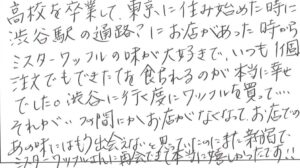 高校を卒業して、東京に住み始めた時に
渋谷駅の通路?にお店があった時から
ミスターワッフルの味が大好きで、いつも1個
注文でもできたてを食られるのが本当に幸せ
でした。渋谷に行く度にワッフルを買って…
それがいつの間にかお店がなくなって、お店での
あの味にはもう出会えないと思っていたのにまた新宿で
ミスターワッフルさんに再会できて本当に嬉しかったです!!